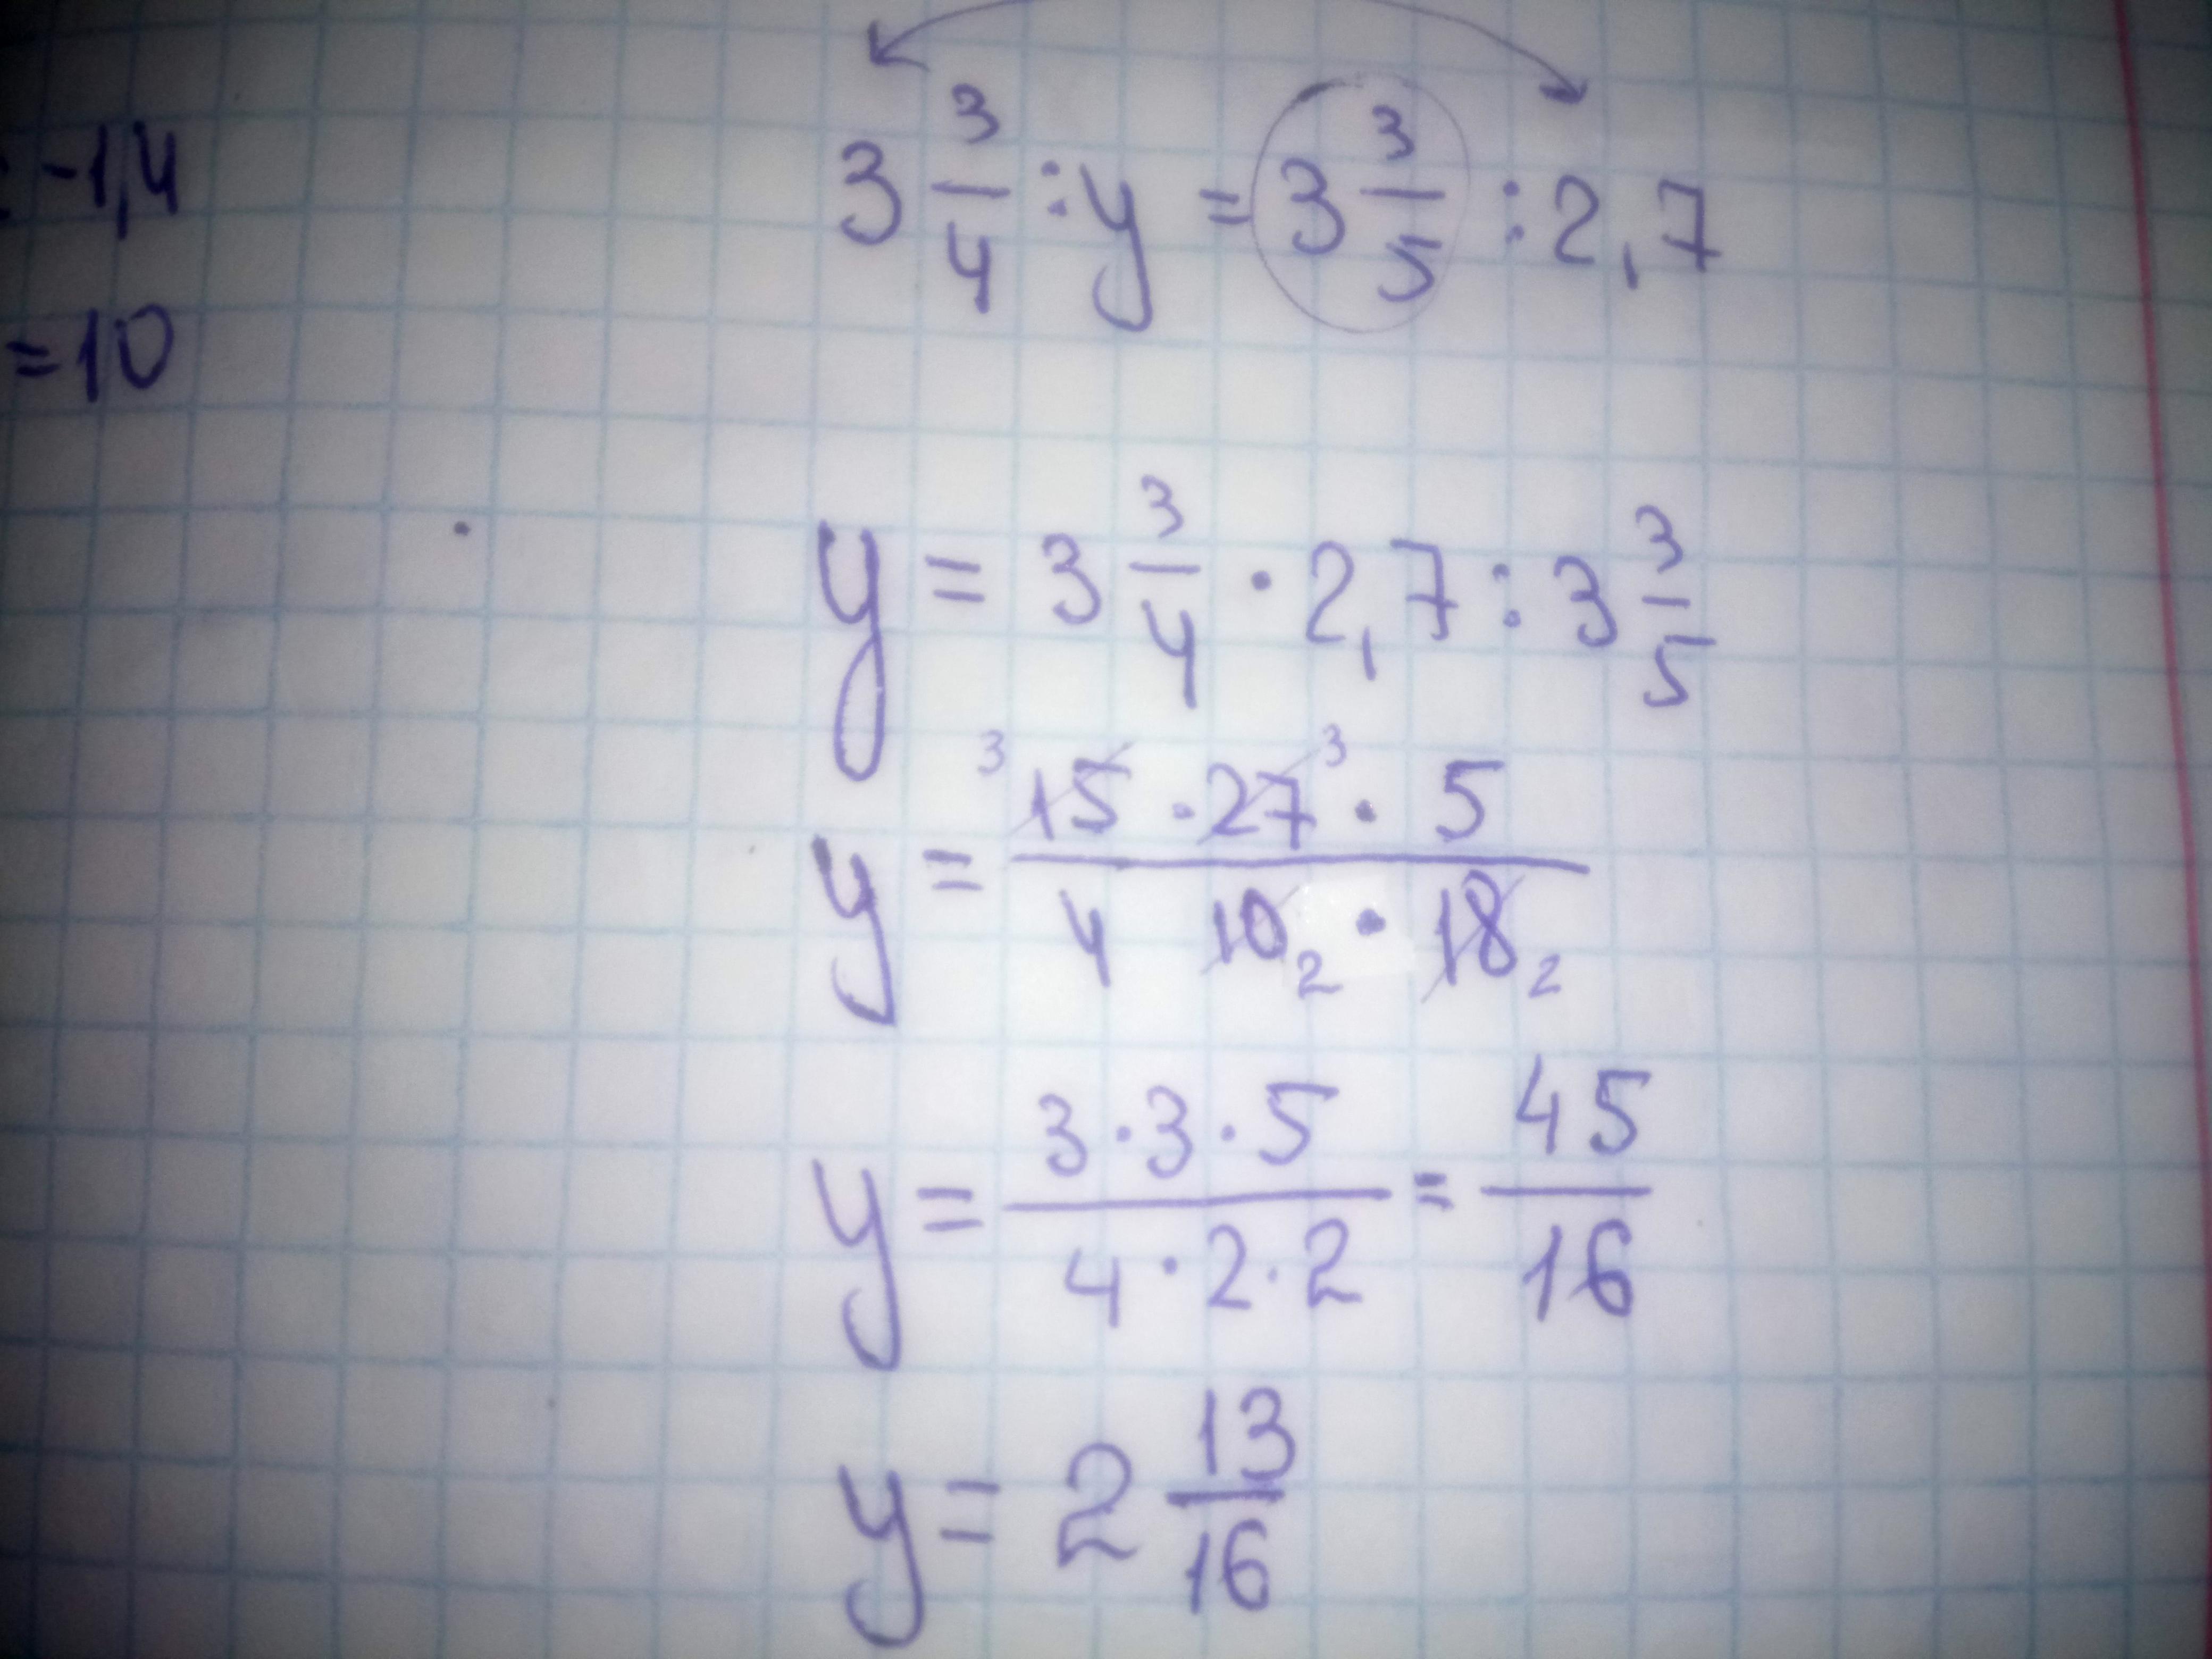 : -1,4
= 10
3 3/4 : y = 3 3/5 : 2,7
y = 3 3/4 · 2,7 : 3 3/5
3 3
y = 15 · 27 · 5 / 4 10 · 18
2 2
y = 3 · 3 · 5 / 4 · 2 · 2 = 45/16
y = 2 13/16